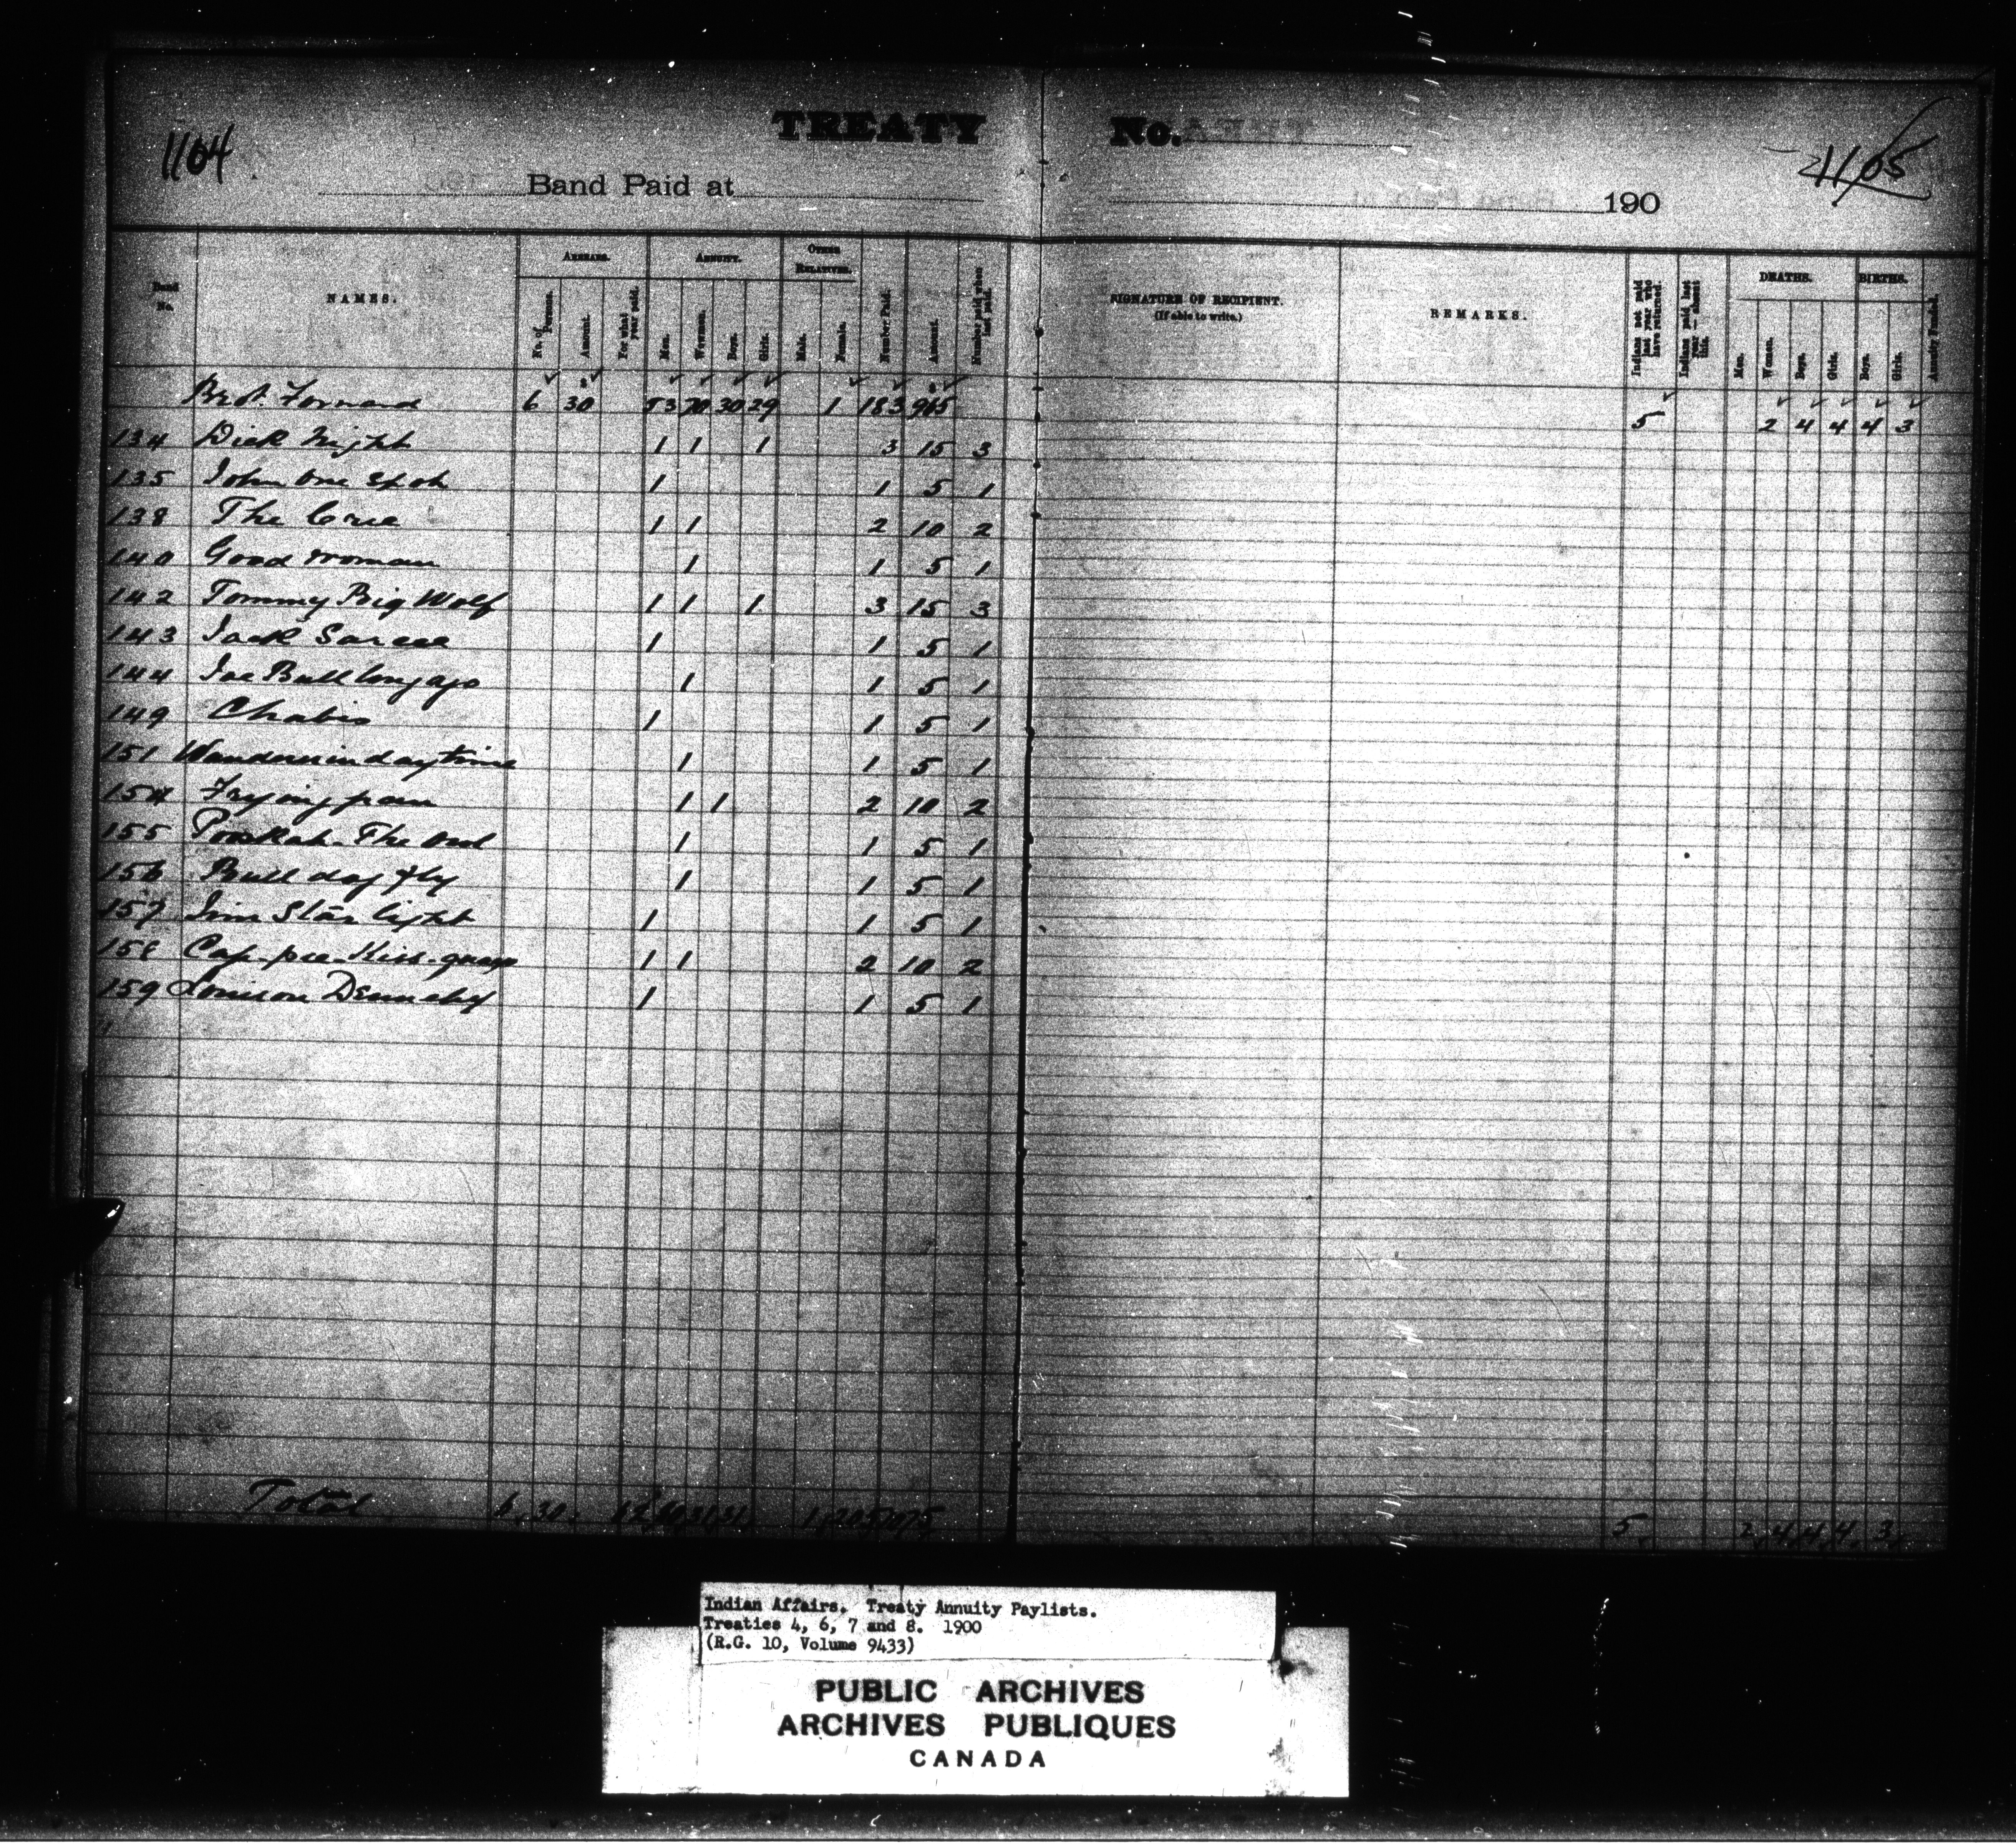 1104
TREATY No.
1105
Band Paid at 190
Band No.
NAMES.
ARREARS.
No. of Persons.
Amount.
For what year paid.
ANNUITY.
Men.
Women.
Boys.
Girls.
OTHER RELATIVES.
Male.
Female.
Number Paid.
Amount.
Number paid when last paid.
SIGNATURE OF RECIPIENT.
(If able to write.)
REMARKS.
Indians not paid last year who have returned.
Indians paid last year — absent this.
DEATHS.
Men.
Women.
Boys.
Girls.
BIRTHS.
Boys.
Girls.
Annuity Funded.
Brot. Forward 6 30 53 70 30 29 1 183 965 5 2 4 4 4 3
134 Dick Night 1 1 1 3 15 3
135 John One Spot 1 1 5 1
138 The Cree 1 1 2 10 2
140 Good Woman 1 1 5 1
142 Tommy Big Wolf 1 1 1 3 15 3
143 Jack Sarcee 1 1 5 1
144 Joe Bull long ago 1 1 5 1
149 Chabis 1 1 5 1
151 Wanders in daytime 1 1 5 1
154 Frying pan 1 1 2 10 2
155 The Owl 1 1 5 1
156 Bull dog fly 1 1 5 1
157 Jim Star light 1 1 5 1
158 Cap-pee-Kiss- 1 1 2 10 2
159 Louison 1 1 5 1
Total 6 30 31 31 1 205 1075 5 2 4 4 4 3
Indian Affairs. Treaty Annuity Paylists.
Treaties 4, 6, 7 and 8. 1900
(R.G. 10, Volume 9433)
PUBLIC ARCHIVES
ARCHIVES PUBLIQUES
CANADA